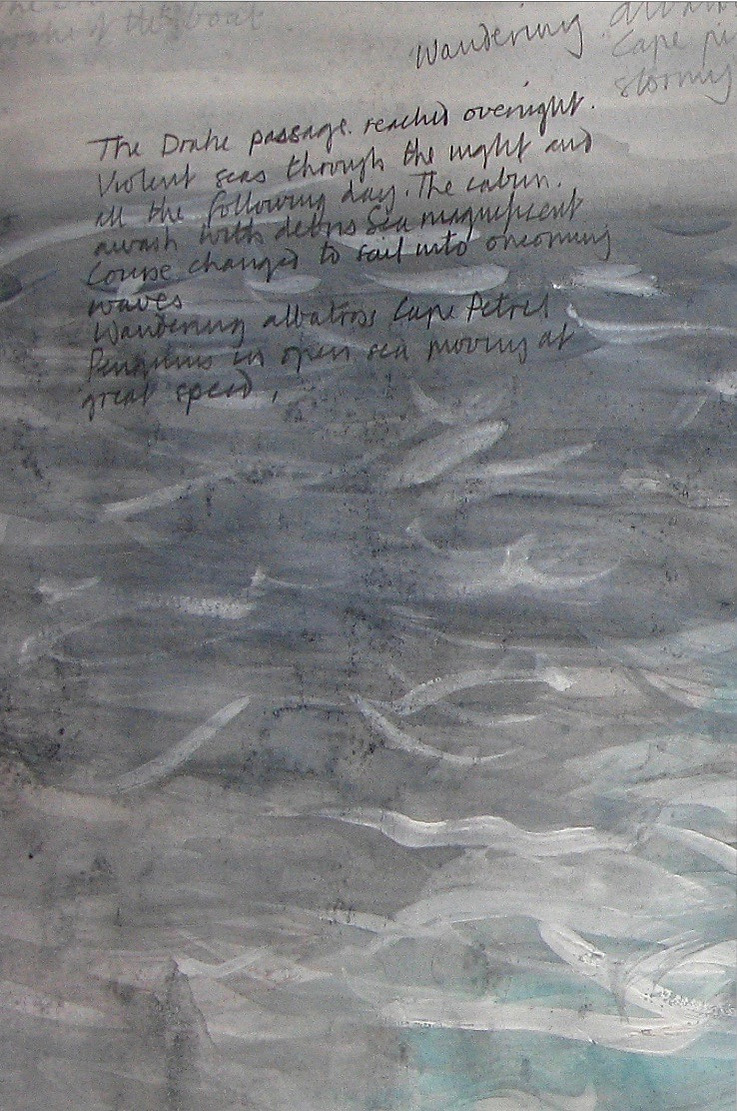 of the boat
Wandering
Cape
stormy
The Drake passage. reached overnight.
Violent seas through the night and
all the following day. The cabin.
awash with debris Sea magnificent
Course changed to sail into oncoming
waves
Wandering albatross Cape Petrel
Penguins in open sea moving at
great speed,